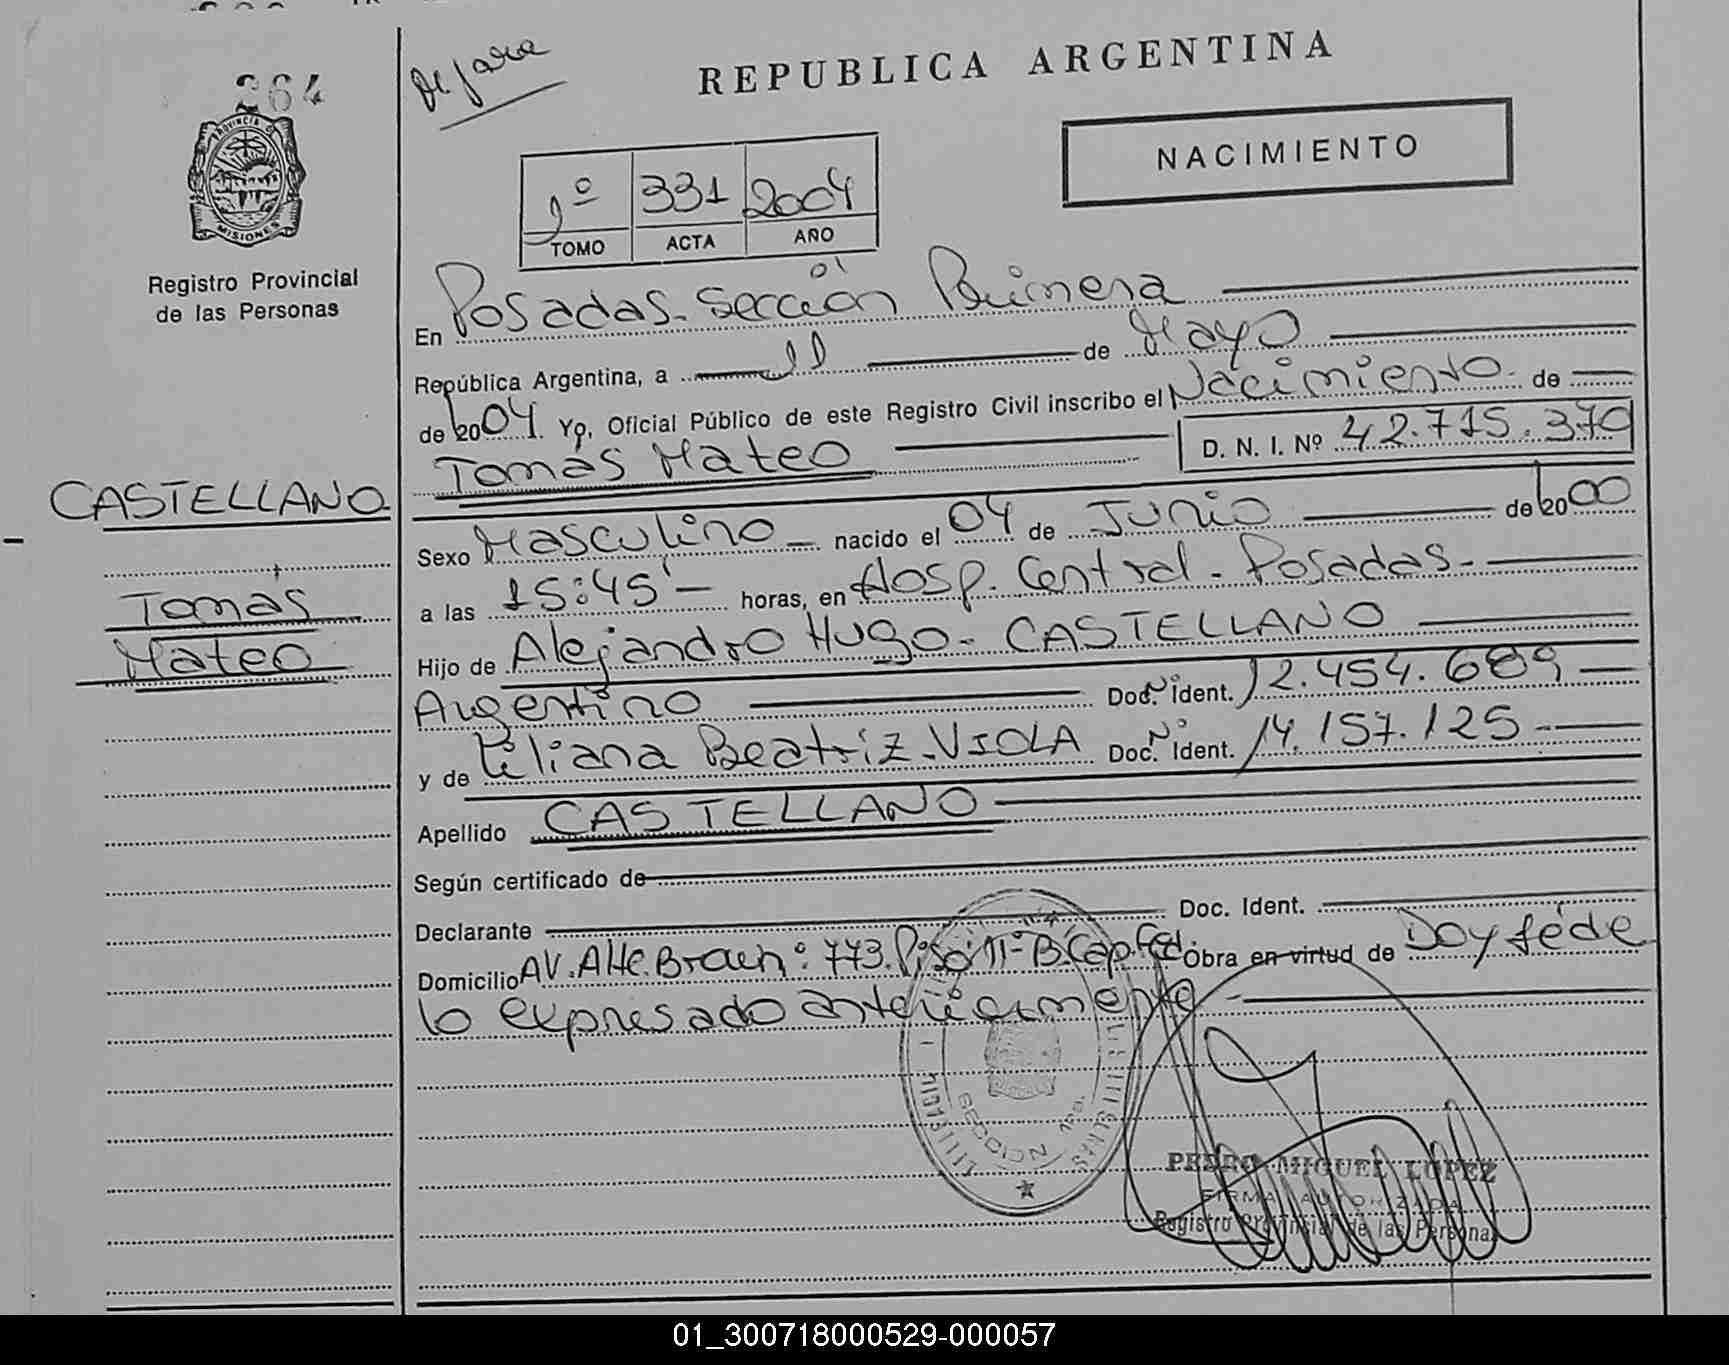 264
PROVINCIA D
MISIONES
Registro Provincial
de las Personas
REPUBLICA ARGENTINA
NACIMIENTO
1º 331 2004
TOMO ACTA AÑO
En Posadas. Sección Primera
República Argentina, a 11 de Mayo
de 2004. Yo, Oficial Público de este Registro Civil inscribo el Nacimiento. de
Tomás Mateo D. N. I. Nº 42.715.370
CASTELLANO
Tomás
Mateo
Sexo Masculino nacido el 04 de Junio de 2000
a las 15:45' horas, en Hosp. Central. Posadas.
Hijo de Alejandro Hugo. CASTELLANO
Argentino Doc. Nº ident. 12.454.689
y de Liliana Beatriz. VIOLA Doc. Nº ident. 14.157.125
Apellido CASTELLANO
Según certificado de
Declarante Doc. Ident.
Domicilio AV. Alte. Brown: 773. Piso: 11º B. Cap. Fed. Obra en virtud de Doy fé de
lo expresado anteriormente
SECCION 1RA.
PEDRO MIGUEL LOPEZ
FIRMA AUTORIZADA
Registro Provincial de las Personas
01_300718000529-000057